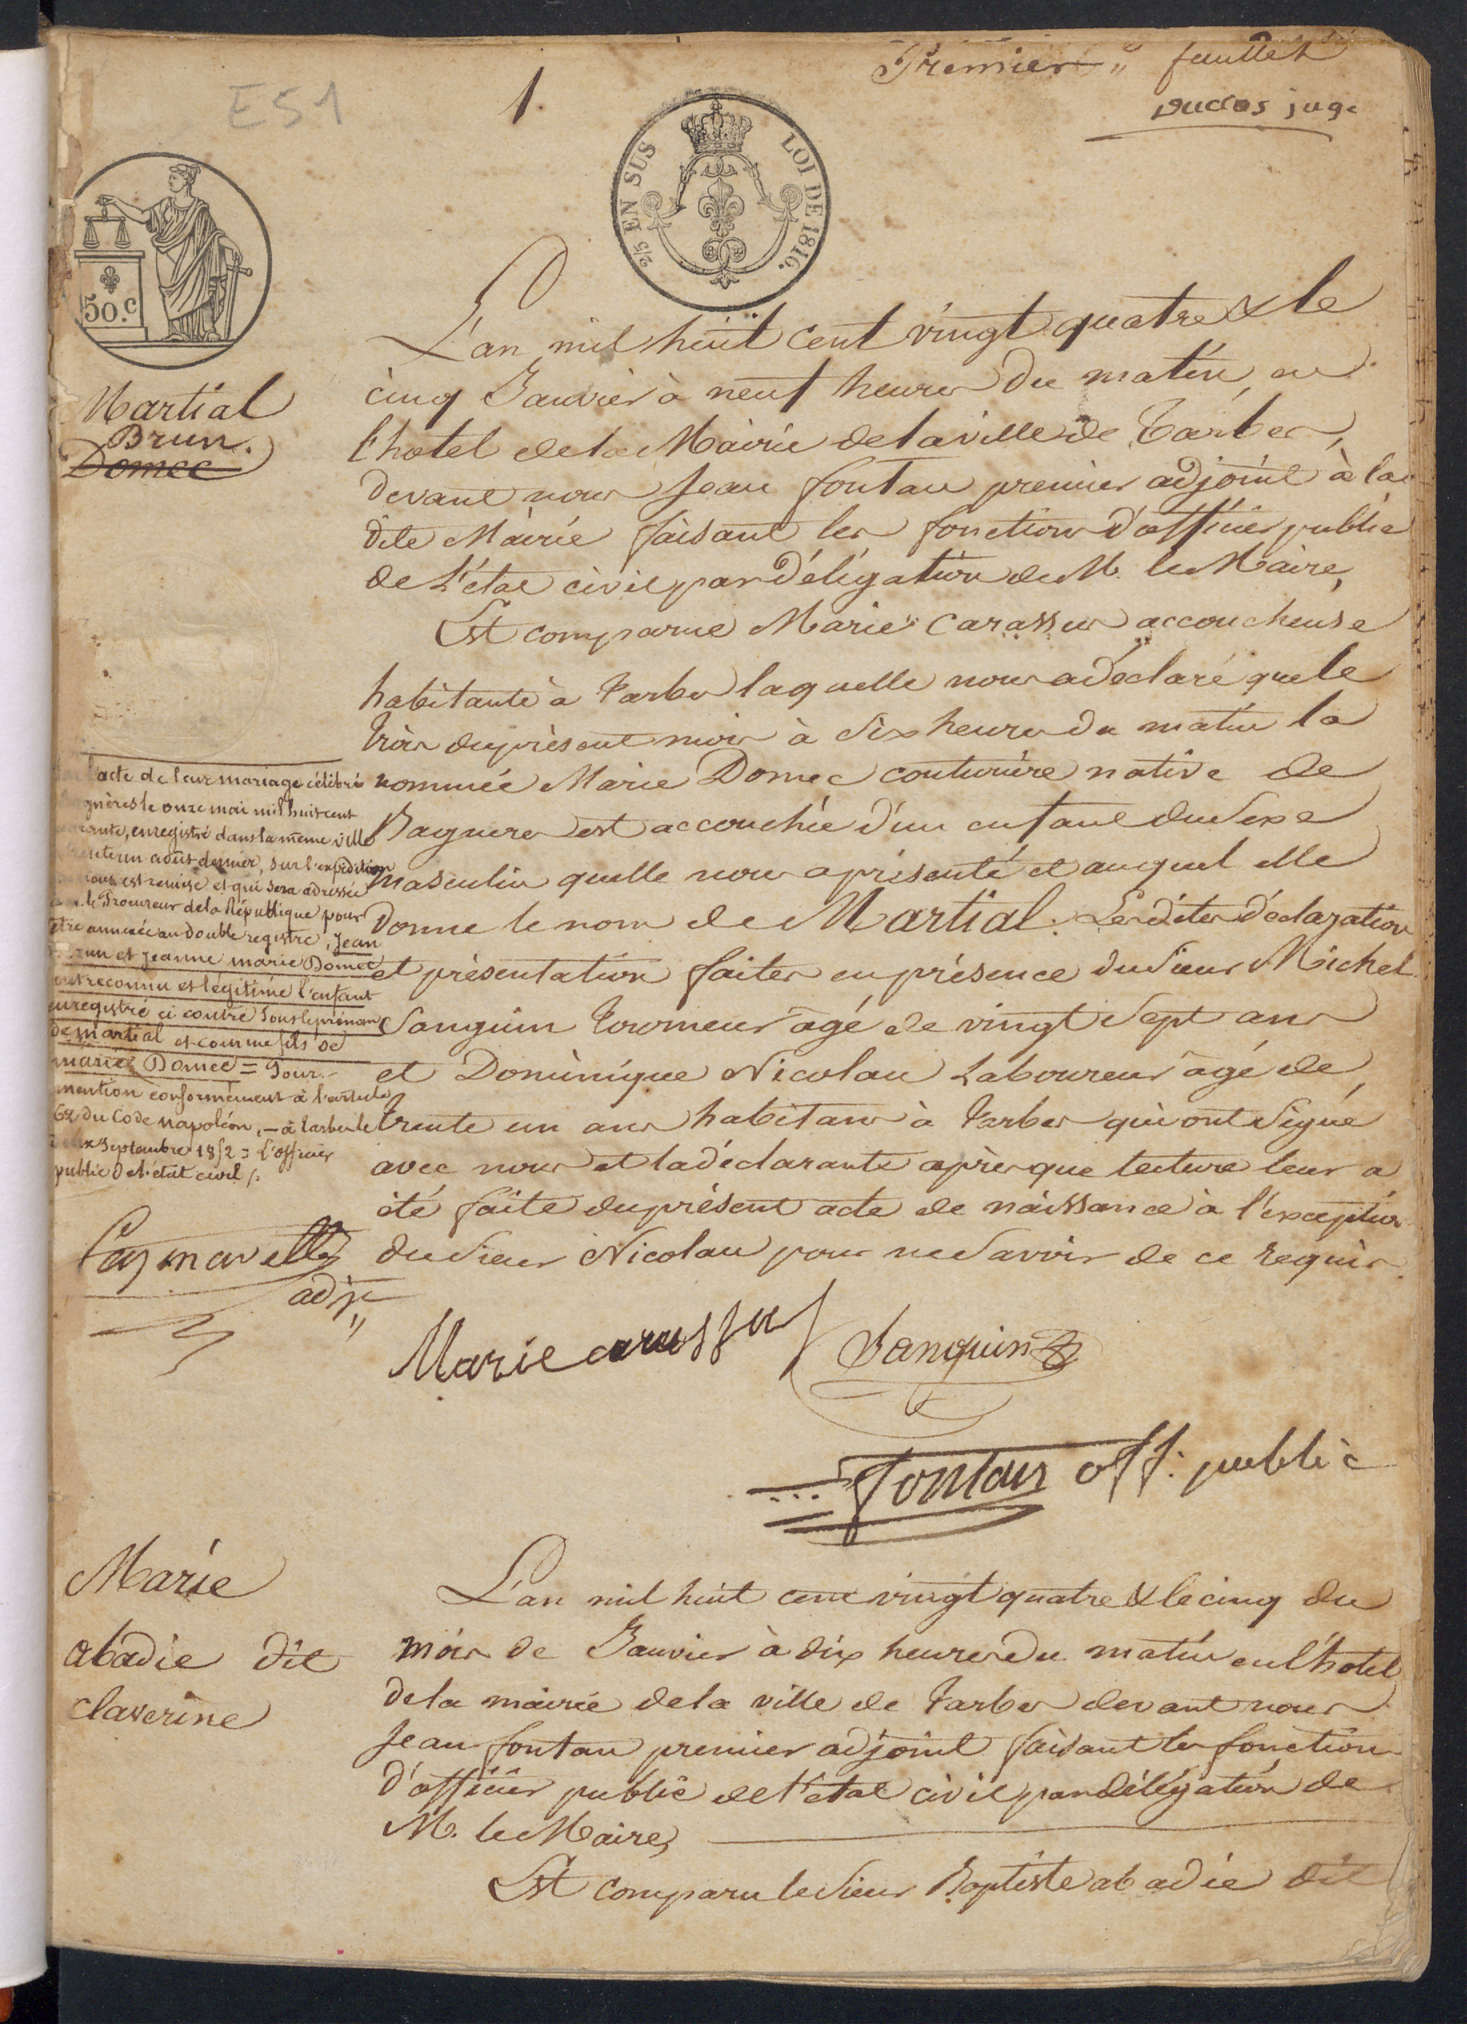 E51
1.
Premier feuillet
Duclos juge
2/5 EN SUS LOI DE 1816.
50.c
Martial
Brun.
Domec
L'an mil huit cent vingt quatre & le
cinq Janvier à neuf heures du matin, en
l'hotel de la Mairie de la ville de Tarbes,
devant nous Jean fontan premier adjoint à la
dite Mairie faisant les fonctions d'officier public
de L'état civil par délégation de M. le Maire,
Est comparue Marie Carassus accoucheuse
habitante à Tarbes laquelle nous a déclaré que le
trois du présent mois à six heures du matin la
nommée Marie Domec couturière native de
Bagneres est accouchée d'un enfant du sexe
masculin quelle nous a présenté et auquel elle
donne le nom de Martial. Les dites déclaration
et présentation faites en présence du sieur Michel
Sanguin Tourneur âgé de vingt sept ans
et Dominique Nicolau Laboureur âgé de
trente un ans habitans à Tarbes qui ont signé
avec nous et la déclarante après que lecture leur a
été faite du présent acte de naissance à l'exception
du sieur Nicolau pour ne savoir de ce requis.
l'acte de leur mariage célébré
gnères le onze mai mil huit cent
enregistré dans la même ville
un août dernier, sur l'expédition
nous est remise et qui sera adressée
le Procureur de la République pour
être annexée au double registre, Jean
Brun et Jeanne marie Domec
ont reconnu et légitimé l'enfant
enregistré ci contre sous le prénom
de martial et comme fils de
marie Domec = Pour
mention conformément à l'article
62 du Code Napoléon, - à tarbes le
Septembre 1852 = l'officier
public de l'état civil /.
Laymavelle
adjt
Marie carassus
Sanguin
Fontan off. public
Marie
abadie dit
claverine
L'an mil huit cent vingt quatre & le cinq du
mois de Janvier à dix heures du matin en l'hotel
de la mairie de la ville de Tarbes devant nous
Jean fontan premier adjoint faisant les fonctions
d'officier public de l'état civil par délégation de
M. le Maire,
Est comparu le sieur Baptiste abadie dit